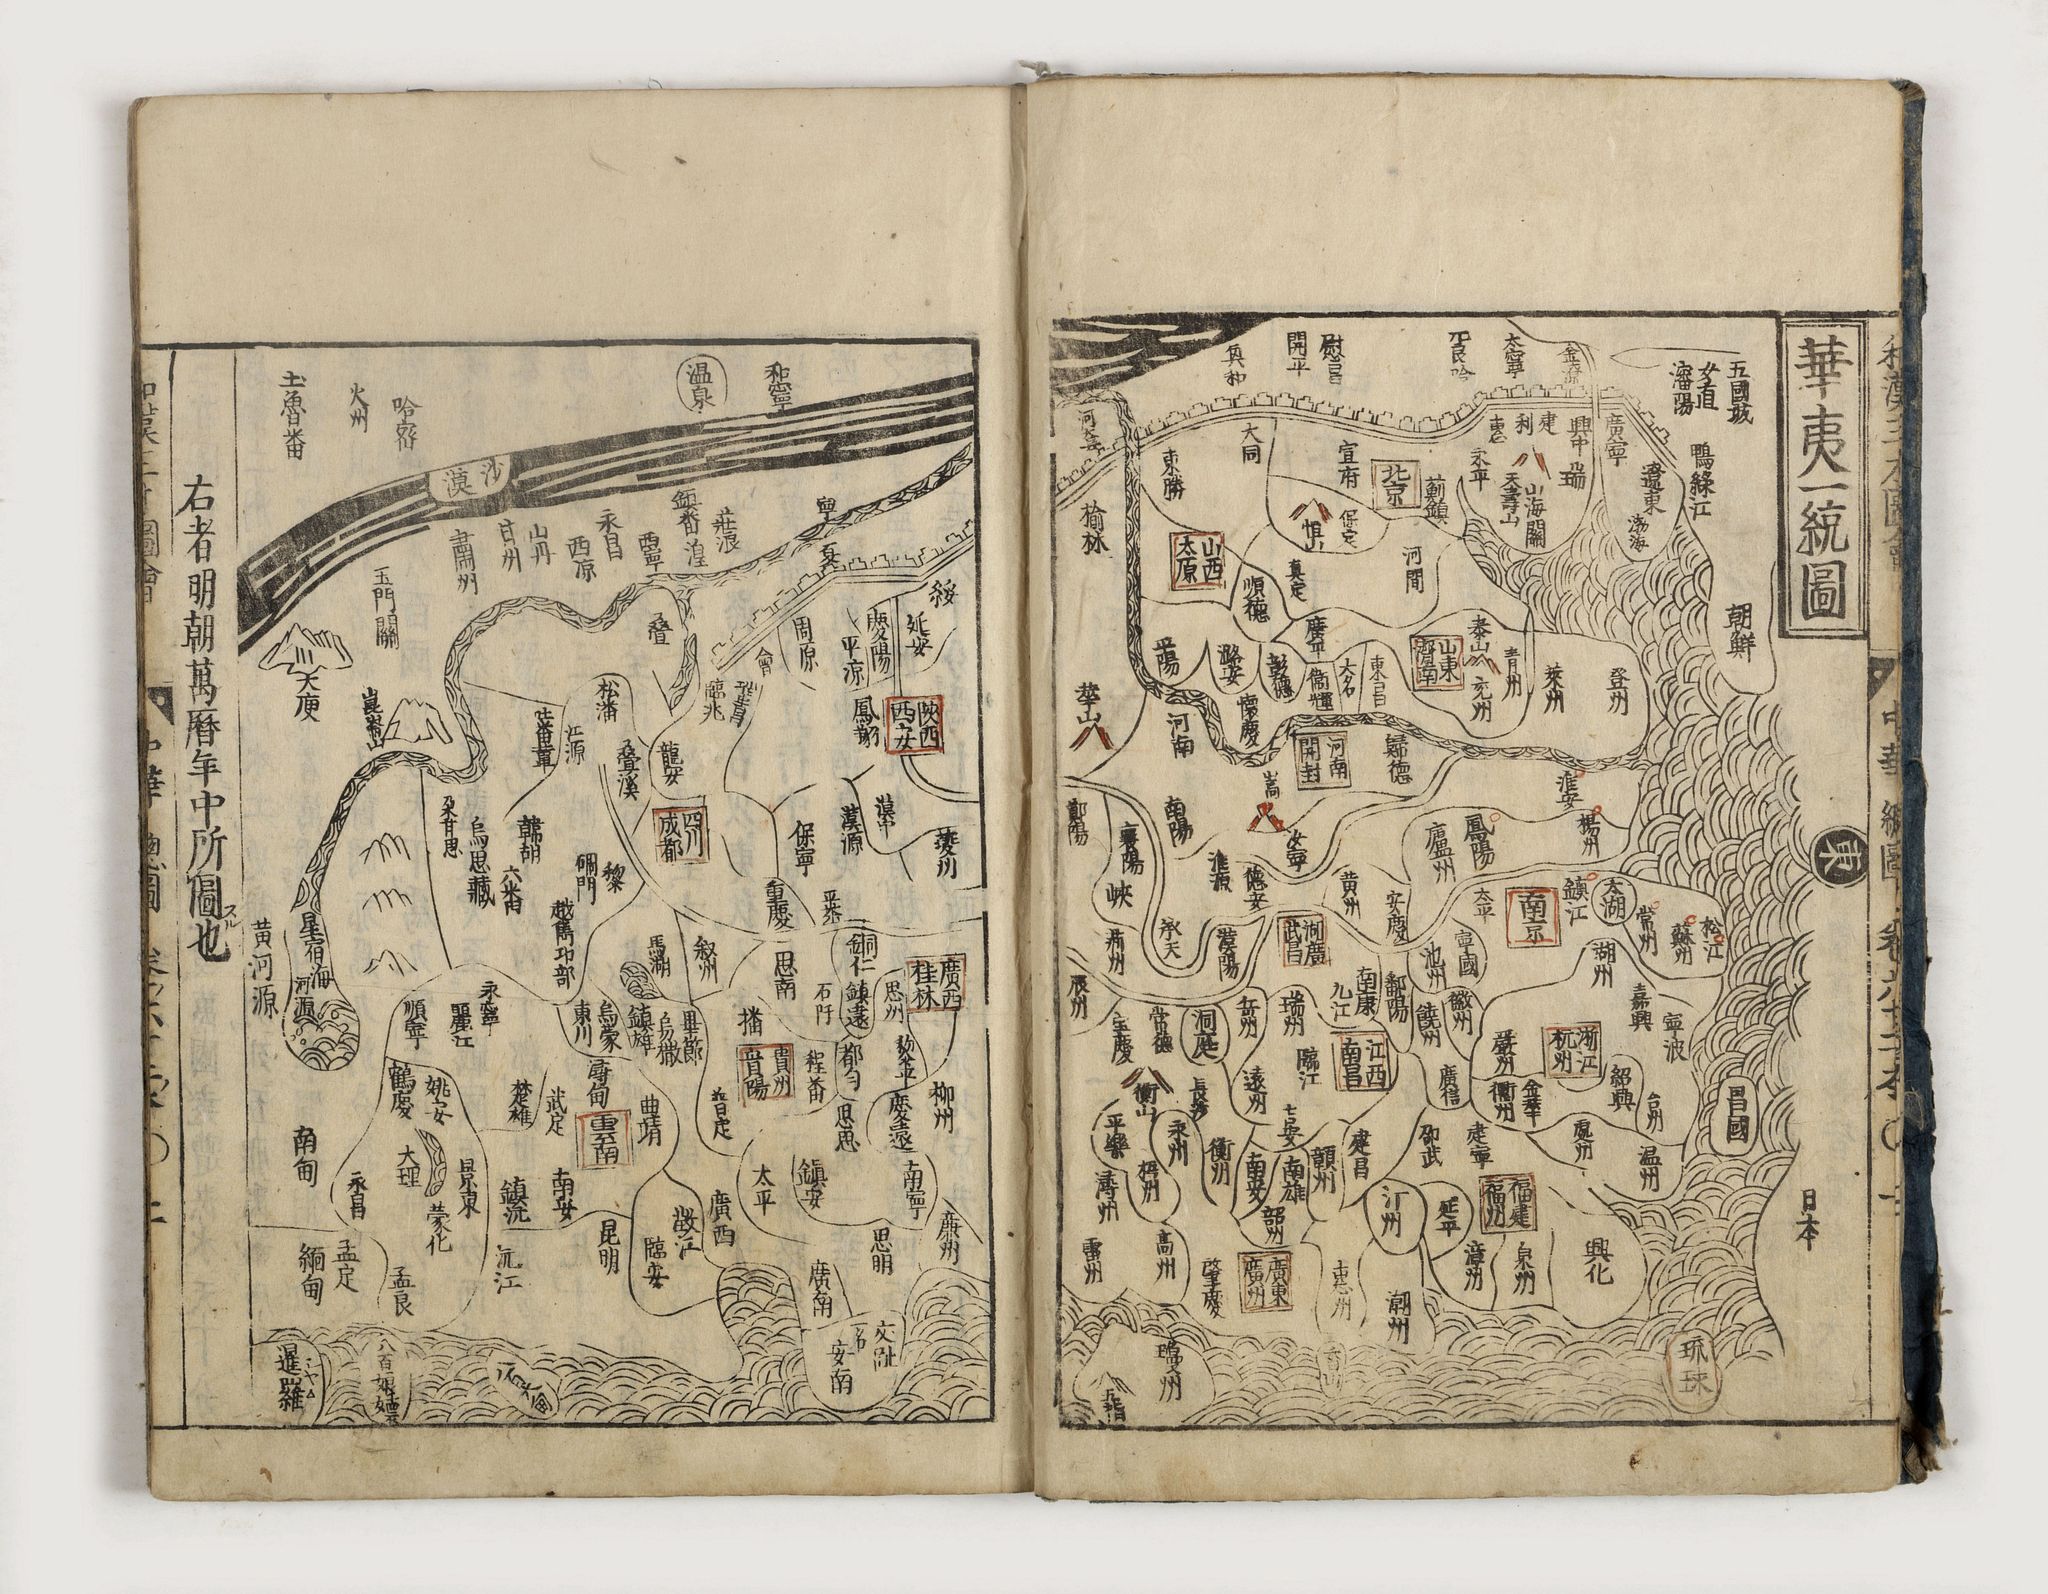 華夷一統圖
東
五國城
女直
瀋陽
鴨綠江
朝鮮
日本
琉球
昌國
太寧
開平
興中
廣寧
遼東
渤海
利
建
瑞
永平
山海關
天壽山
薊鎮
北京
宣府
大同
保定
河間
真定
東勝
榆林
山西
太原
順德
廣平
大名
東昌
山東
濟南
泰山
兗州
青州
萊州
登州
潞安
彰德
衞輝
懷慶
華山
河南
河南
開封
歸德
嵩
汝寧
南陽
襄陽
淮安
鳳陽
楊州
廬州
淮源
德安
黃州
安慶
太平
南京
鎮江
太湖
常州
蘇州
松江
峽
荊州
承天
漢陽
湖廣
武昌
池州
寧國
湖州
嘉興
寧波
辰州
寶慶
常德
洞庭
岳州
瑞州
九江
南康
鄱陽
饒州
徽州
嚴州
浙江
杭州
紹興
台州
衡山
長沙
臨江
江西
南昌
廣信
衢州
金華
處州
温州
平樂
永州
衡州
南安
南雄
贛州
建昌
邵武
建寧
潯州
梧州
汀州
延平
福建
福州
興化
雷州
高州
肇慶
廣東
廣州
惠州
潮州
漳州
泉州
和寧
温泉
沙漠
哈密
火州
土魯番
寧夏
莊浪
鎮番
西寧
永昌
西凉
山丹
甘州
肅州
玉門關
崑崙山
綏
延安
慶陽
平凉
周原
臨兆
陝西
西安
鳳翔
松潘
江源
疊溪
龍安
四川
成都
保寧
漢源
漢中
夔川
朶甘思
烏思藏
韓胡
碉門
黎
重慶
馬湖
叙州
思南
銅仁
鎮遠
思州
廣西
桂林
石阡
播
貴州
程番
都勻
慶遠
柳州
星宿海
河源
黃河源
順寧
麗江
永寧
東川
烏蒙
鎮雄
烏撒
畢節
鶴慶
姚安
楚雄
武定
曲靖
大理
景東
蒙化
鎮沅
南安
昆明
臨安
廣西
太平
鎮安
南寧
思明
廉州
廣南
南甸
永昌
孟定
緬甸
孟艮
沅江
交趾
一名
安南
暹羅
シヤム
右者明朝萬曆年中所圖スル也